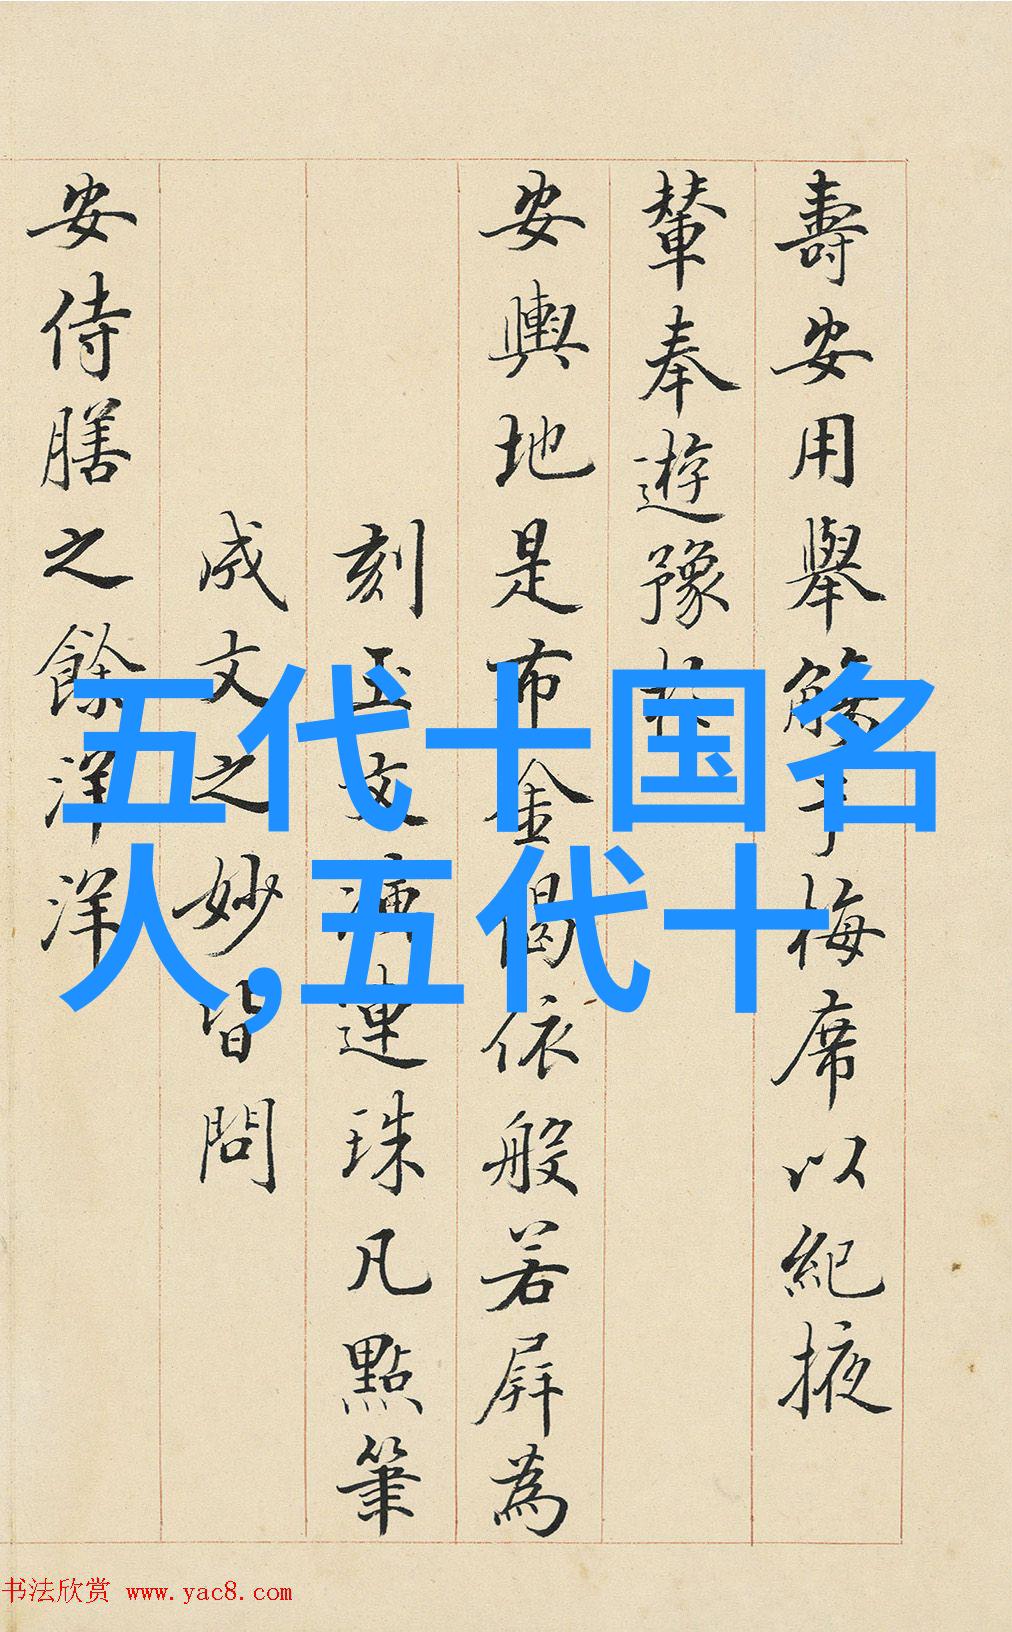 壽安用舉觴于梅席以紀掖
輦奉遊豫於
安輿地是布金偈依般若屏為
刻玉文連珠凡點筆
成文之妙皆問
安侍膳之餘洋洋
五代十国名
人,五代十
书法欣赏 www.yac8.com